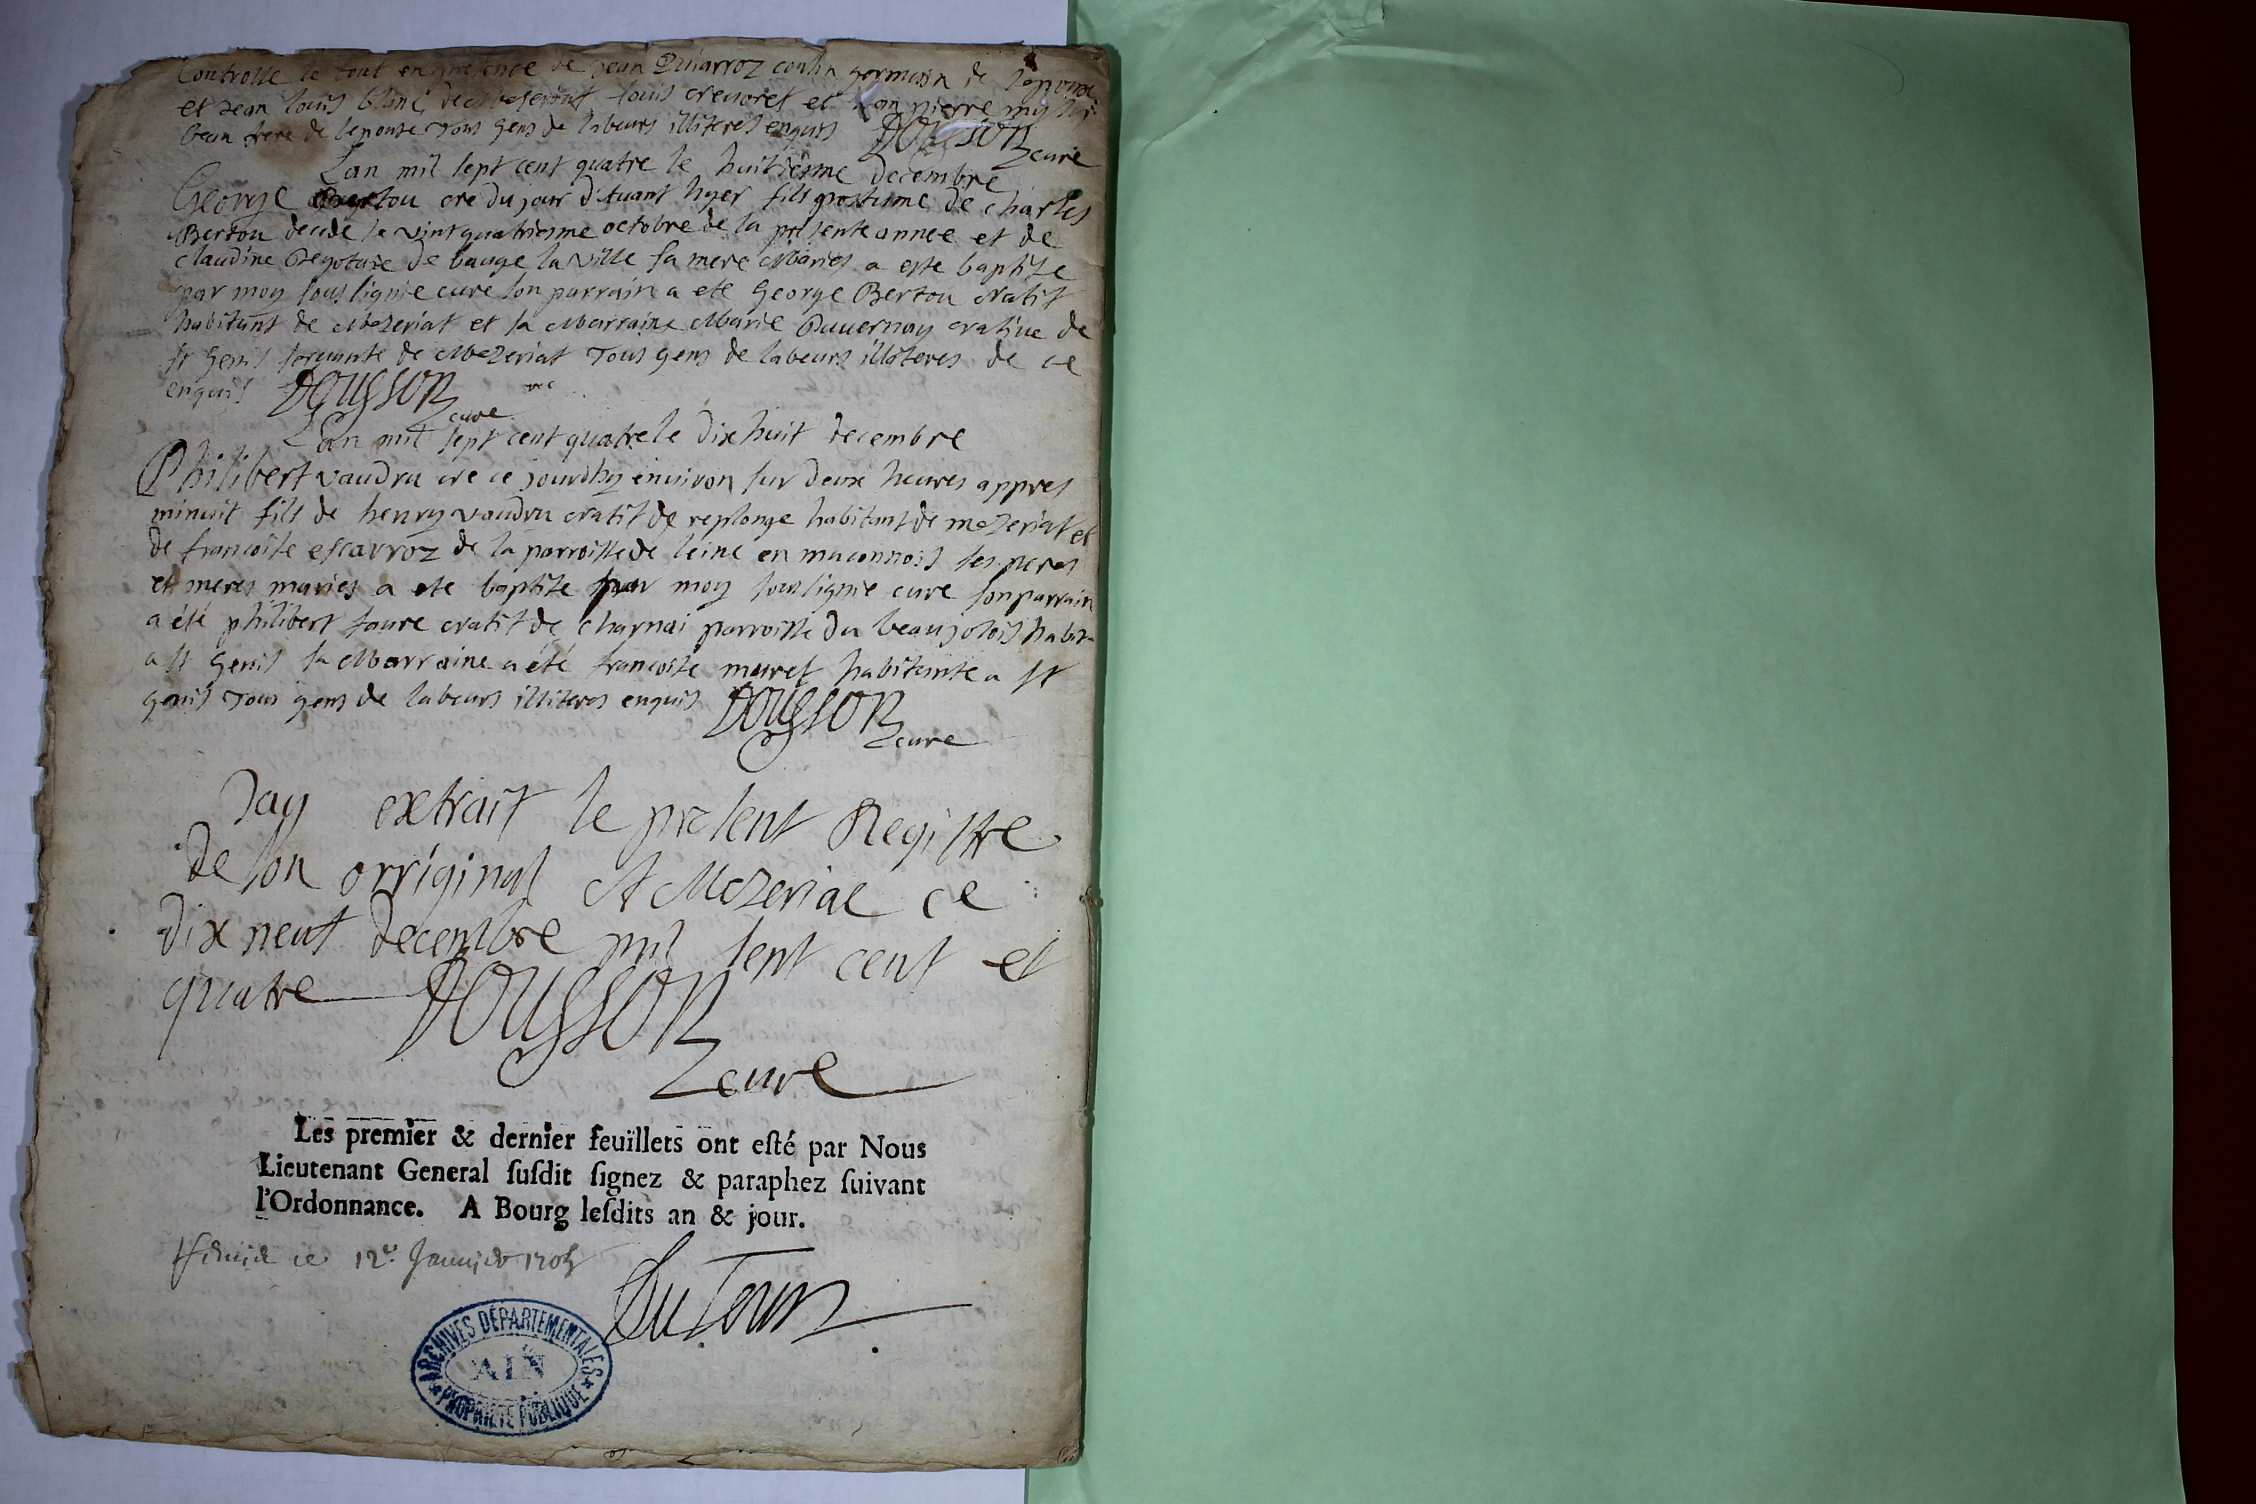 Controlle le tout en presence de Jean Quiarroz cousin germain de lepouse
et Jean louis blanc de louis crevoret et Jean pierre
beau frere de lepouse Tous gens de labeurs illiteres enquis DOUSSON cure
Lan mil sept cent quatre le huitiesme decembre
George Bertou né du jour d'avant hyer fils postume de charles
Bertou decede le vint quatriesme octobre de la presente annee et de
claudine de bauge la ville sa mere Maries a este baptise
par moy soussignie cure son parrain a ete George Bertou Natif
habitant de Mezeriat et sa Marraine Marie Duvernay Native de
st Genis servante de Mezeriat Tous gens de labeurs illiteres de ce
enquis DOUSSON cure
Lan mil sept cent quatre le dix huit decembre
Philibert vaudru né ce jourdhy environ sur deux heures appres
minuit fils de henry vaudru Natif de replonge habitant de mezeriat et
de francoise escarroz de la parroisse de leine en maconnois ses peres
et meres maries a ete baptise par moy soussignie cure son parrain
a été philibert faure Natif de charnai parroisse du beaujolois habit
a st Genis sa Marraine a été francoise muret habitante a st
genis Tous gens de labeurs illiteres enquis DOUSSON cure
Jay extrait le present Registre
de son orriginal A Mezeriat ce
dix neuf decembre mil sept cent et
quatre DOUSSON
cure
Les premier & dernier feuillets ont eſté par Nous
Lieutenant General ſuſdit ſignez & paraphez ſuivant
l'Ordonnance. A Bourg leſdits an & jour.
ce 12e Janvier 1705
DuTour
ARCHIVES DÉPARTEMENTALES
AIN
PROPRIÉTÉ PUBLIQUE